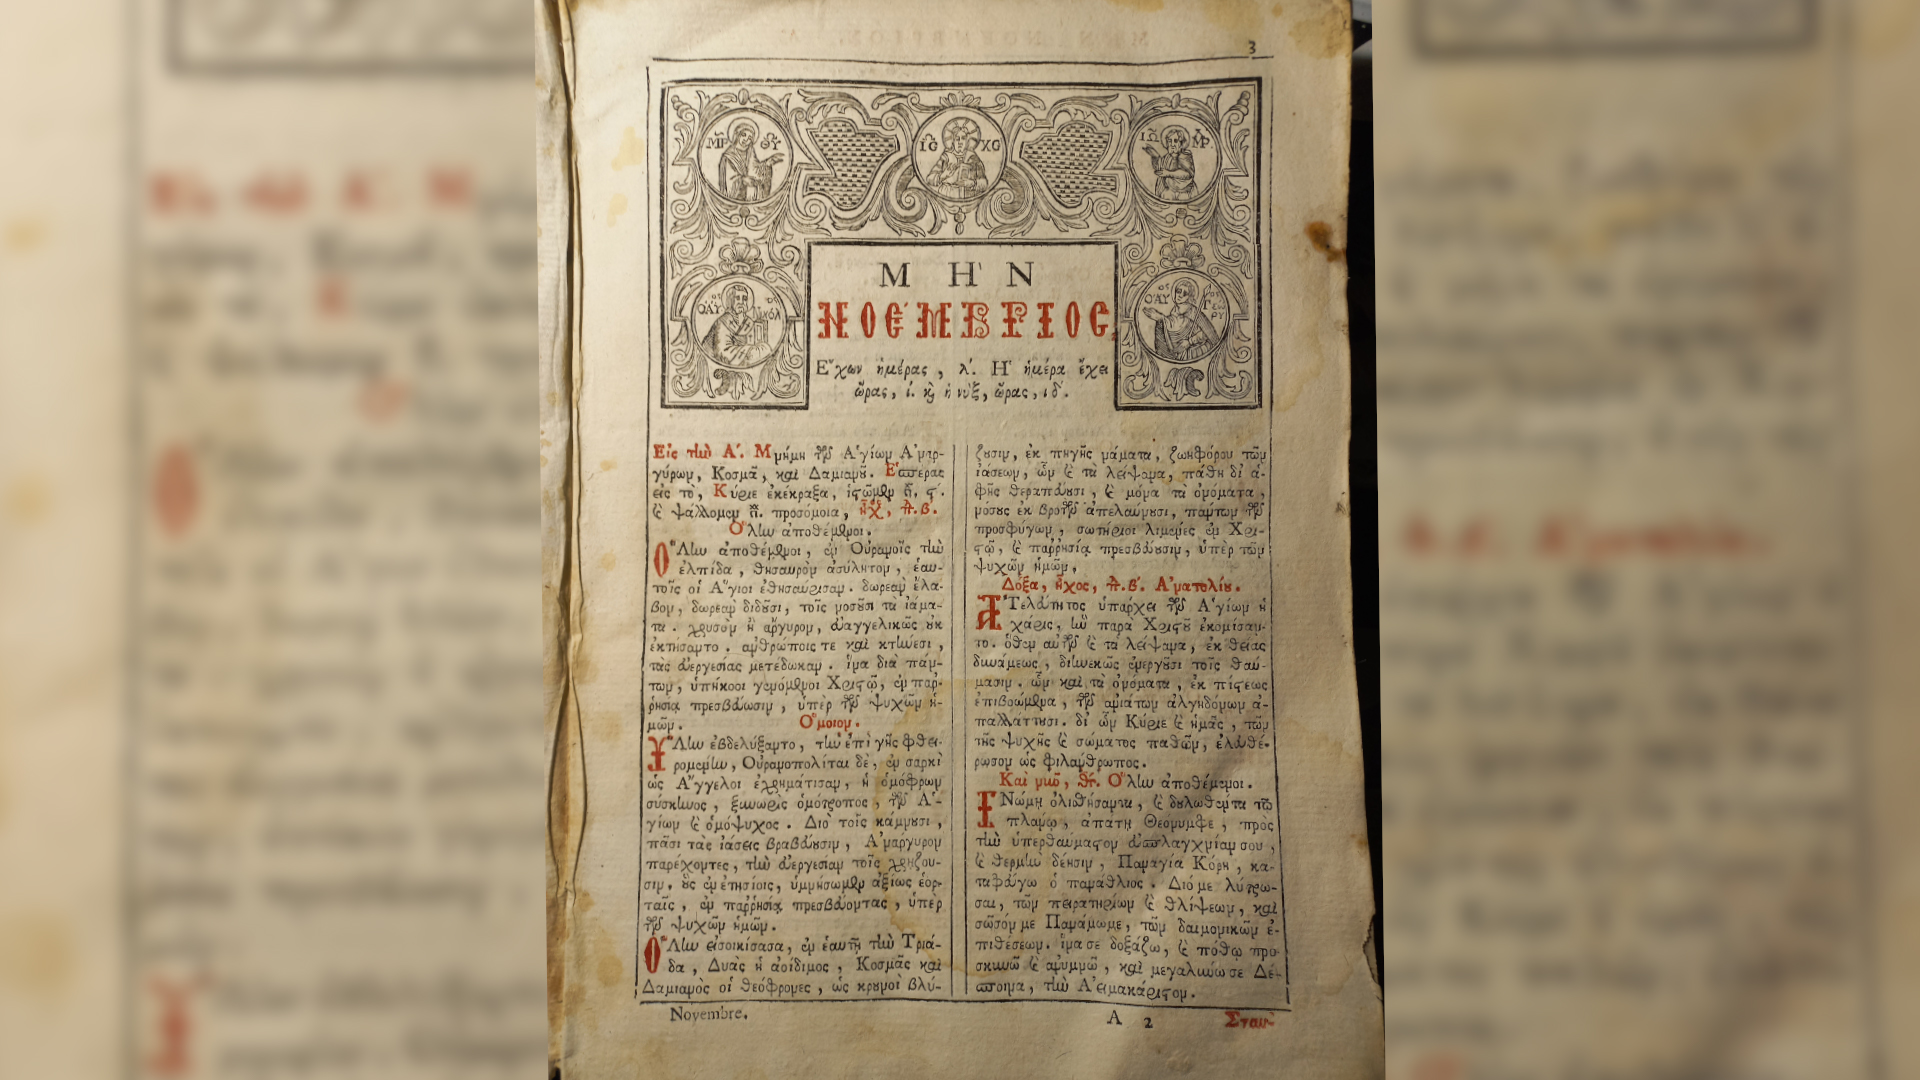 3
ΜΡ ΘΥ
ΙϹ ΧϹ
ΙΩ
Μ Η῀ Ν
ΝΟΕ΄ΜΒΡΙΟϹ,
Ε῎χων ἡμέρας, λ΄. Η῾ ἡμέρα ἔχει
ὥρας, ι΄. κὶ ἡ νὺξ, ὥρας, ιδ΄.
Εἰς τὴν Α΄. Μνήμη τῶν Α῾γίων Α᾿ναρ-
γύρων, Κοσμᾶ, καὶ Δαμιανοῦ. Ε῾σπέρας
εἰς τὸ, Κύριε ἐκέκραξα, ἱστῶμεν
καὶ ψάλλομεν προσόμοια, ἦχ, β.
Ο῞λην ἀποθέμενοι.
Ο῞Λην ἀποθέμενοι, ἐν Οὐρανοῖς τὴν
ἐλπίδα, θησαυρὸν ἀσύλητον, ἑαυ-
τοῖς οἱ Α῞γιοι ἐθησαύρισαν. δωρεὰν ἔλα-
βον, δωρεὰν διδοῦσι, τοῖς νοσοῦσι τὰ ἰάμα-
τα. χρυσὸν ἢ ἄργυρον, εὐαγγελικῶς οὐκ
ἐκτήσαντο. ἀνθρώποις τε καὶ κτήνεσι,
τὰς εὐεργεσίας μετέδωκαν. ἵνα διὰ πάν-
των, ὑπήκοοι γενόμενοι Χριστῷ, ἐν παῤ-
ῥησίᾳ πρεσβεύωσιν, ὑπὲρ τῶν ψυχῶν ἡ-
μῶν. Ο῞μοιον.
Υ῞Λην ἐβδελύξαντο, τὴν ἐπὶ γῆς φθει-
ρομένην, Οὐρανοπολῖται δὲ, ἐν σαρκὶ
ὡς Α῎γγελοι ἐχρημάτισαν, ἡ ὁμόφρων
σύσκηνος, ξυνωρὶς ὁμότροπος, τῶν Α῾-
γίων καὶ ὁμόψυχος. Διὸ τοῖς κάμνουσι,
πᾶσι τὰς ἰάσεις βραβεύουσιν, Α᾿νάργυρον
παρέχοντες, τὴν εὐεργεσίαν τοῖς χρῄζου-
σιν. οὓς ἐν ἐτησίοις, ὑμνήσωμεν ἀξίως ἑορ-
ταῖς, ἐν παῤῥησίᾳ πρεσβεύοντας, ὑπὲρ
τῶν ψυχῶν ἡμῶν.
Ο῞Λην εἰσοικίσασα, ἐν ἑαυτῇ τὴν Τριά-
δα, Δυὰς ἡ ἀοίδιμος, Κοσμᾶς καὶ
Δαμιανὸς οἱ θεόφρονες, ὡς κρουνοὶ βλύ-
ζουσιν, ἐκ πηγῆς νάματα, ζωηφόρου τῶν
ἰάσεων, ὧν καὶ τὰ λείψανα, πάθη δι᾿ ἁ-
φῆς θεραπεύουσι, καὶ μόνα τὰ ὀνόματα,
νόσους ἐκ βροτῶν ἀπελαύνουσι, πάντων τῶν
προσφύγων, σωτήριοι λιμένες ἐν Χρι-
στῷ, καὶ παῤῥησίᾳ πρεσβεύουσιν, ὑπὲρ τῶν
ψυχῶν ἡμῶν,
Δόξα, ἦχος, β΄. Α᾿νατολίου.
Α᾿Τελεύτητος ὑπάρχει τῶν Α῾γίων ἡ
χάρις, ἣν παρὰ Χριστοῦ ἐκομίσαν-
το. ὅθεν αὐτῶν καὶ τὰ λείψανα, ἐκ θείας
δυνάμεως, διηνεκῶς ἐνεργοῦσι τοῖς θαύ-
μασιν. ὧν καὶ τὰ ὀνόματα, ἐκ πίστεως
ἐπιβοώμενα, τῶν ἀνιάτων ἀλγηδόνων ἀ-
παλλάττουσι. δι᾿ ὧν Κύριε καὶ ἡμᾶς, τῶν
τῆς ψυχῆς καὶ σώματος παθῶν, ἐλευθέ-
ρωσον ὡς φιλάνθρωπος.
Καὶ νῦν, Ο῞λην ἀποθέμενοι.
ΓΝώμῃ ὀλισθήσαντα, καὶ δουλωθέντα τῷ
πλάνῳ, ἀπάτῃ Θεόνυμφε, πρὸς
τὴν ὑπερθαύμαστον εὐσπλαγχνίαν σου,
καὶ θερμὴν δέησιν, Παναγία Κόρη, κα-
ταφεύγω ὁ πανάθλιος. Διό με λύτρω-
σαι, τῶν πειρατηρίων καὶ θλίψεων, καὶ
σῶσόν με Πανάμωμε, τῶν δαιμονικῶν ἐ-
πιθέσεων. ἵνα σε δοξάζω, καὶ πόθῳ προ-
σκυνῶ καὶ ἀνυμνῶ, καὶ μεγαλύνω σε Δέ-
σποινα, τὴν Α᾿ειμακάριστον.
Novembre. A 2 Σταυ-